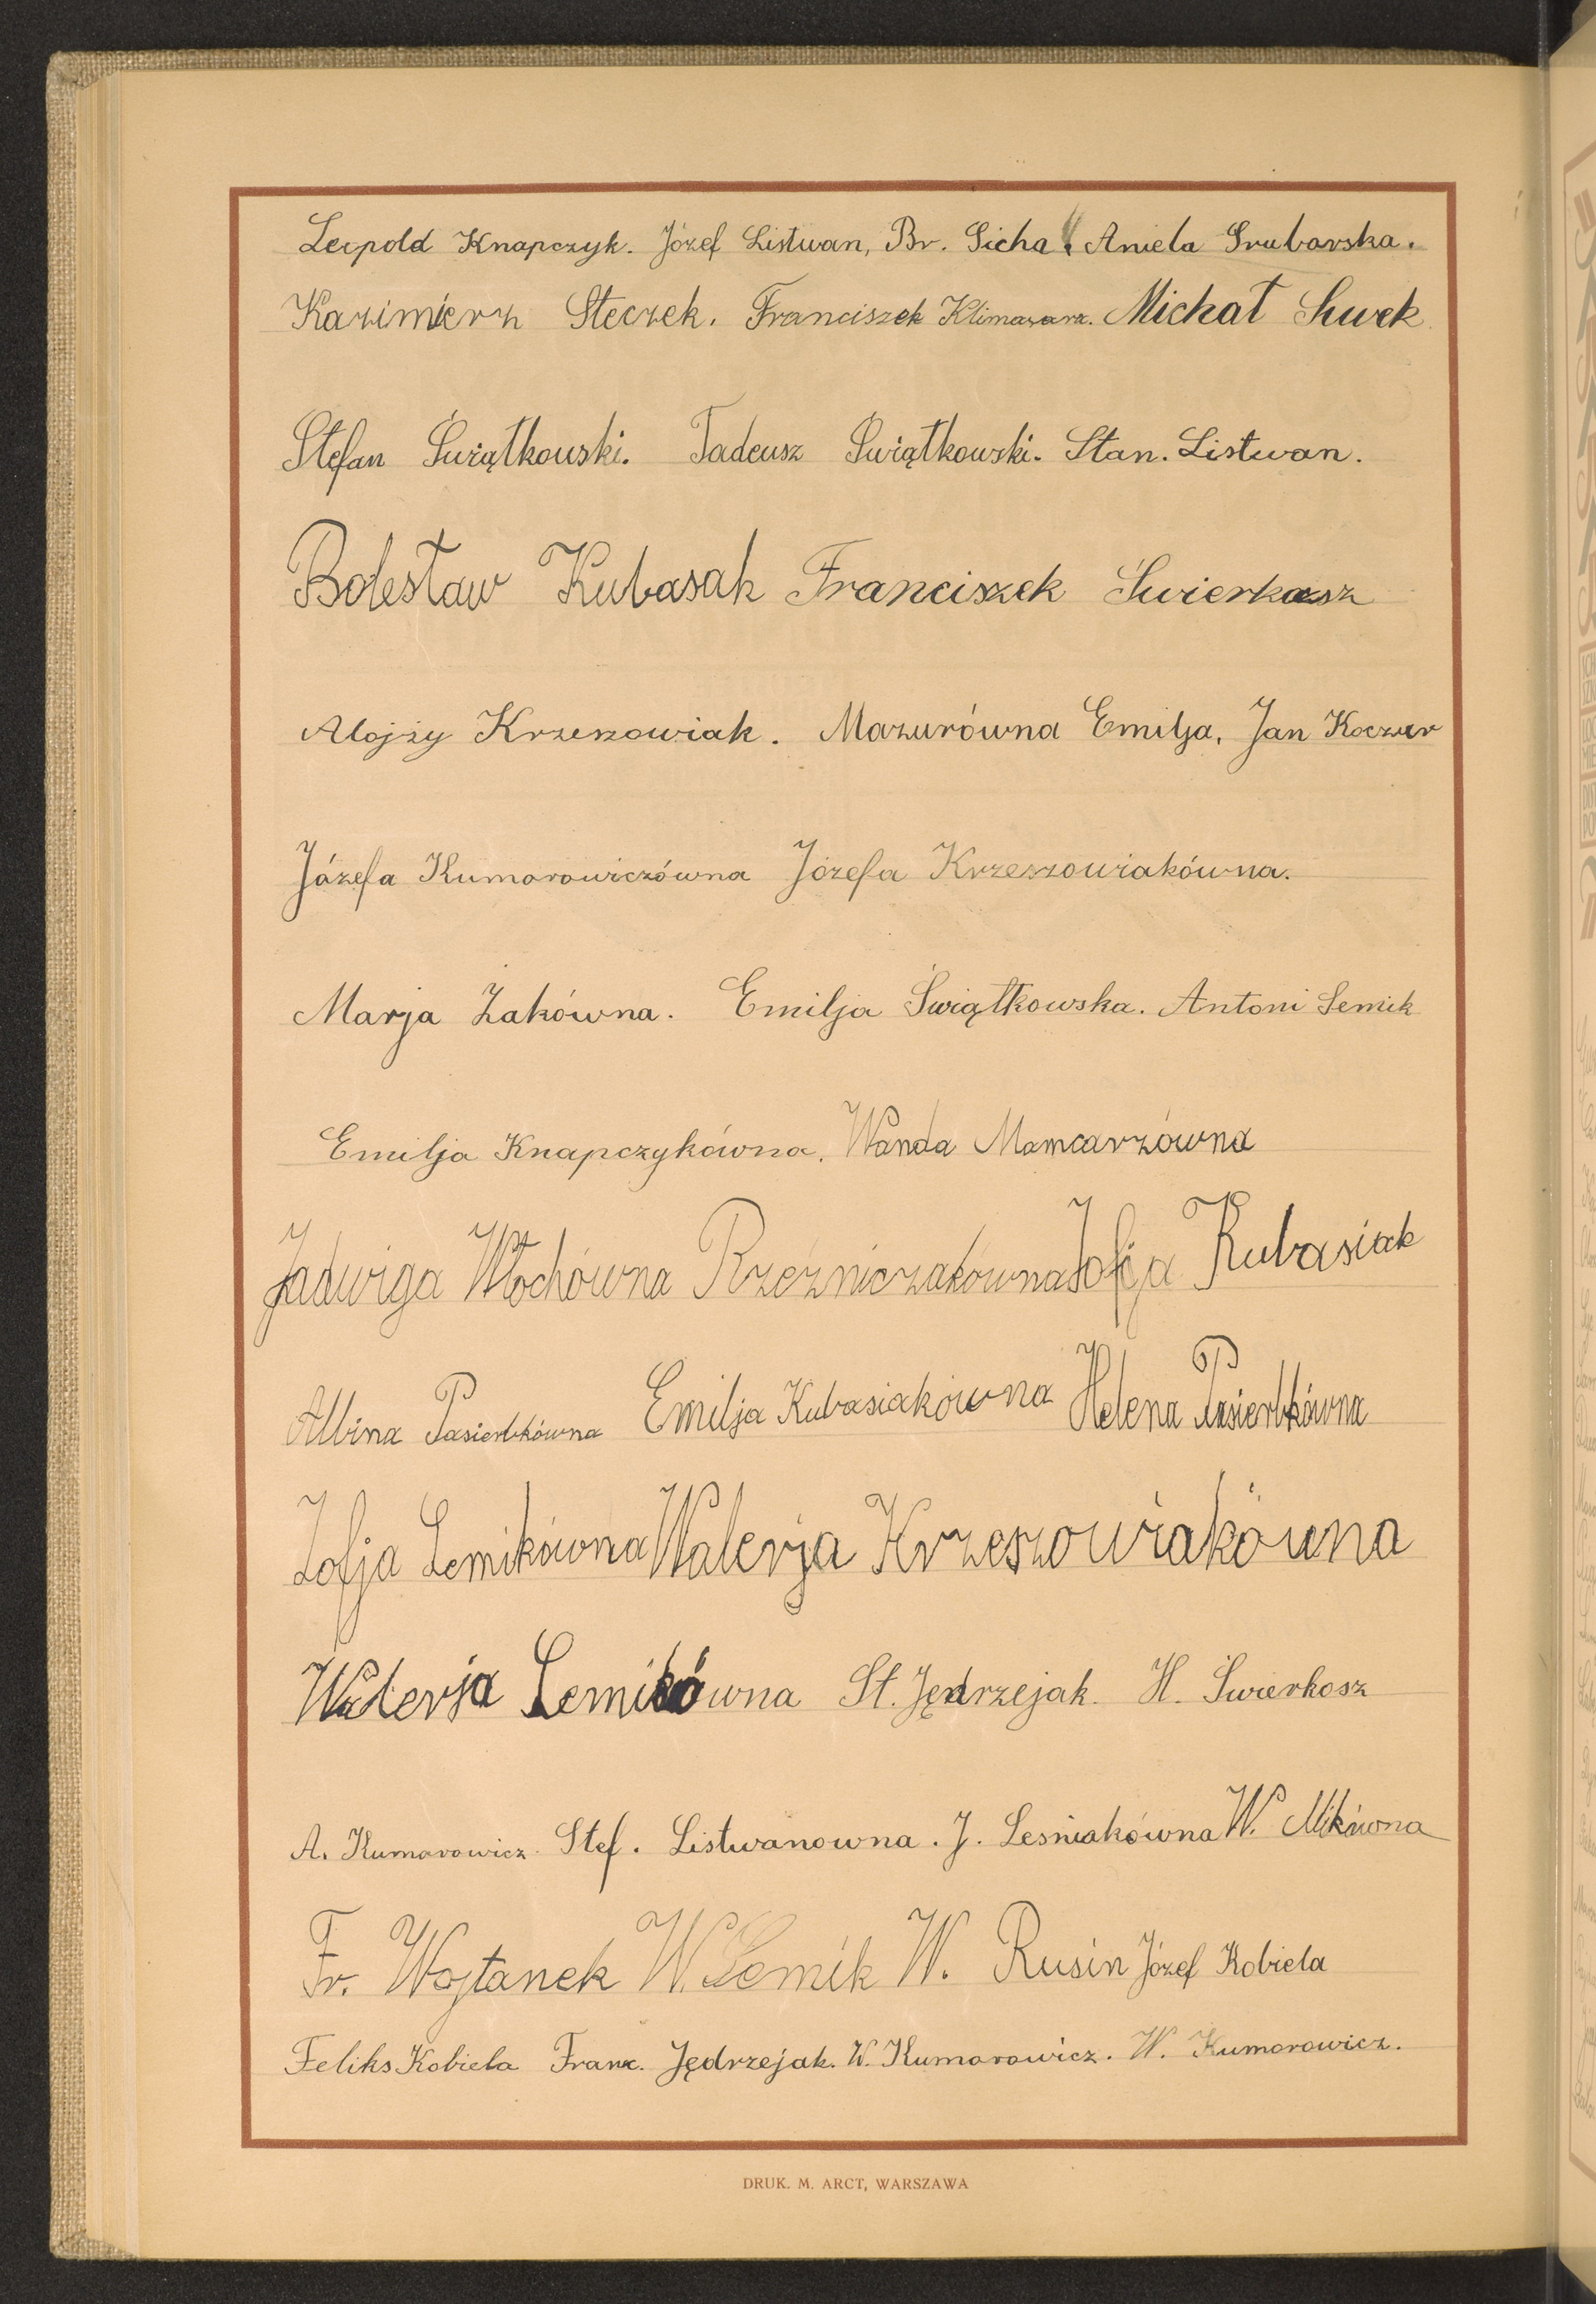 Leopold Knapczyk. Józef Listwan, Br. Sicha, Aniela Grubarska.
Kazimierz Steczek. Franciszek Klimasara. Michał Suwek
Stefan Świątkowski. Tadeusz Świątkowski. Stan. Listwan.
Bolesław Kubasak Franciszek Świerkosz
Alojzy Krzeszowiak. Mazurówna Emilja, Jan Koczur
Józefa Kumorowiczówna Józefa Krzeszowiakówna.
Marja Żakówna. Emilja Świątkowska. Antoni Lemik
Emilja Knapczykówna. Wanda Mamcarzówna
Jadwiga Włochówna Rzeźniczakówna Zofja Kubasiak
Albina Pasierbkówna Emilja Kubasiakówna Helena Pasierbkówna
Zofja Lemikówna Walerja Krzeszowiakówna
Walerja Lemikówna St. Jędrzejak. H. Świerkosz
A. Kumorowicz Stef. Listwanowna. J. Leśniakówna W. Mikówna
Fr. Wojtanek W. Lemik W. Rusin Józef Kobiela
Feliks Kobiela Franc. Jędrzejak. W. Kumorowicz. W. Kumorowicz.
DRUK. M. ARCT, WARSZAWA